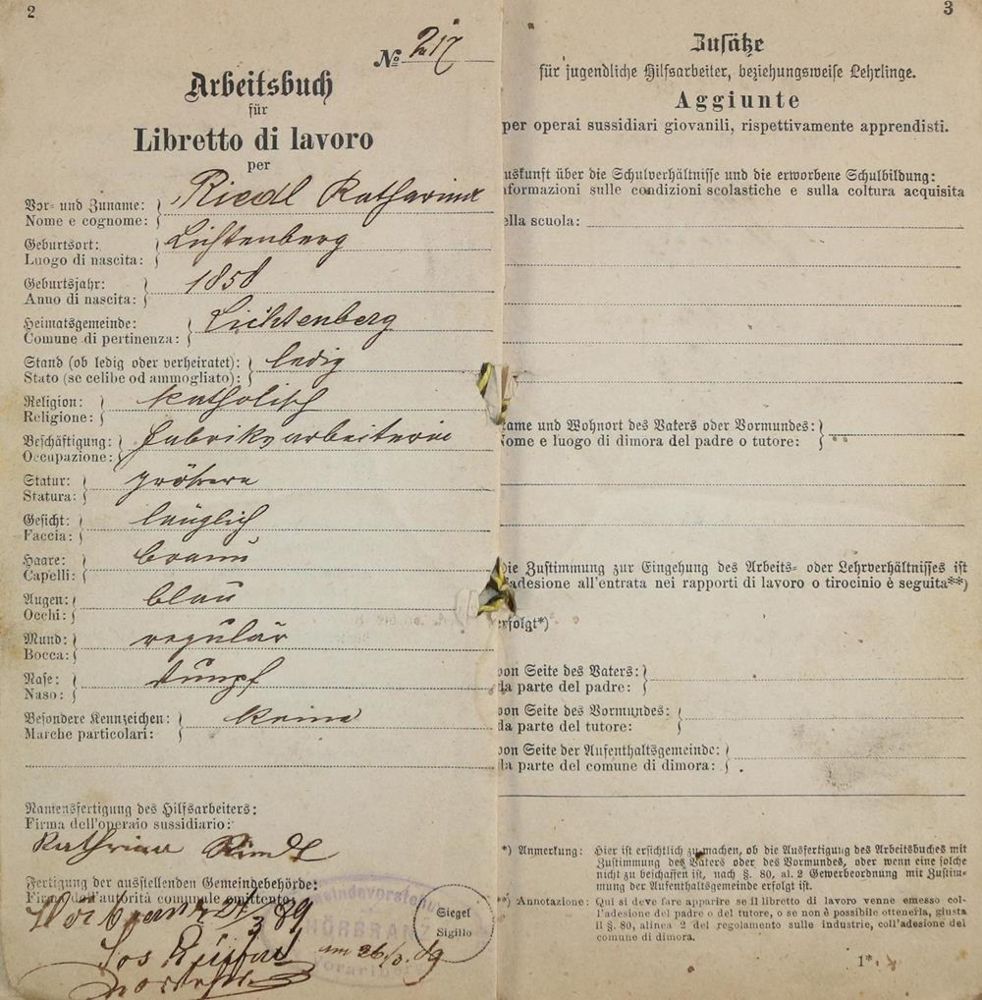 2
№ 217
Arbeitsbuch
für
Libretto di lavoro
per
Vor- und Zuname:
Nome e cognome:
Riedl Katharina
Geburtsort:
Luogo di nascita:
Lichtenberg
Geburtsjahr:
Anno di nascita:
1858
Heimatsgemeinde:
Comune di pertinenza:
Lichtenberg
Stand (ob ledig oder verheiratet):
Stato (se celibe od ammogliato):
ledig
Religion:
Religione:
katholisch
Beschäftigung:
Occupazione:
Fabriksarbeiterin
Statur:
Statura:
größere
Gesicht:
Faccia:
länglich
Haare:
Capelli:
braun
Augen:
Occhi:
blau
Mund:
Bocca:
regulär
Nase:
Naso:
stumpf
Besondere Kennzeichen:
Marche particolari:
keine
Namensfertigung des Hilfsarbeiters:
Firma dell'operaio sussidiario:
Kathrina Riedl
Fertigung der ausstellenden Gemeindebehörde:
Firma dell'autorità comunale emittente:
Hörbranz
89
Jos
am 26/3 89
Gemeindevorstehung
HÖRBRANZ
Vorarlberg
Siegel
Sigillo
3
Zusätze
für jugendliche Hilfsarbeiter, beziehungsweise Lehrlinge.
Aggiunte
per operai sussidiari giovanili, rispettivamente apprendisti.
uskunft über die Schulverhältnisse und die erworbene Schulbildung:
nformazioni sulle condizioni scolastiche e sulla coltura acquisita
ella scuola:
ame und Wohnort des Vaters oder Vormundes:
ome e luogo di dimora del padre o tutore:
Die Zustimmung zur Eingehung des Arbeits- oder Lehrverhältnisses ist
'adesione all'entrata nei rapporti di lavoro o tirocinio è seguita**)
erfolgt*)
von Seite des Vaters:
da parte del padre:
von Seite des Vormundes:
da parte del tutore:
von Seite der Aufenthaltsgemeinde:
da parte del comune di dimora:
*) Anmerkung: Hier ist ersichtlich zu machen, ob die Ausfertigung des Arbeitsbuches mit
Zustimmung des Vaters oder des Vormundes, oder wenn eine solche
nicht zu beschaffen ist, nach §. 80, al. 2 Gewerbeordnung mit Zustim-
mung der Aufenthaltsgemeinde erfolgt ist.
**) Annotazione: Qui si deve fare apparire se il libretto di lavoro venne emesso col-
l'adesione del padre o del tutore, o se non è possibile ottenerla, giusta
il §. 80, alinea 2 del regolamento sulle industrie, coll'adesione del
comune di dimora.
1*